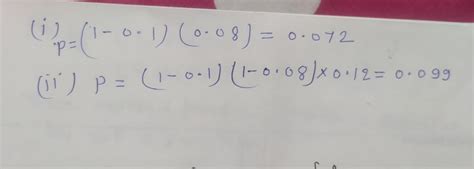 (i) p = (1-0.1) (0.08) = 0.072
(ii) p = (1-0.1) (1-0.08) × 0.12 = 0.099